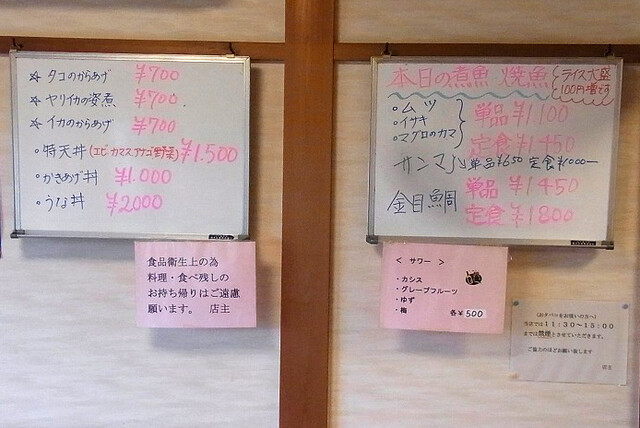 ☆ タコのからあげ ¥700
☆ ヤリイカの姿煮 ¥700.
☆ イカのからあげ ¥700
・特天丼(エビ・カマス・アナゴ・野菜)¥1.500
・かきあげ丼 ¥1.000
・うな丼 ¥2000
食品衛生上の為
料理・食べ残しの
お持ち帰りはご遠慮
願います。 店主
本日の煮魚 焼魚
ライス大盛
100円増です
・ムツ
・イサキ
・マグロのカマ
単品¥1100
定食¥1450
サンマ 単品¥650 定食¥1000ー
金目鯛
単品¥1450
定食¥1800
< サワー >
・カシス
・グレープフルーツ
・ゆず
・梅 各¥500
(おタバコをお吸いの方へ)
当店では11:30~15:00
までは禁煙とさせていただきます。
ご協力のほどお願い致します
店主